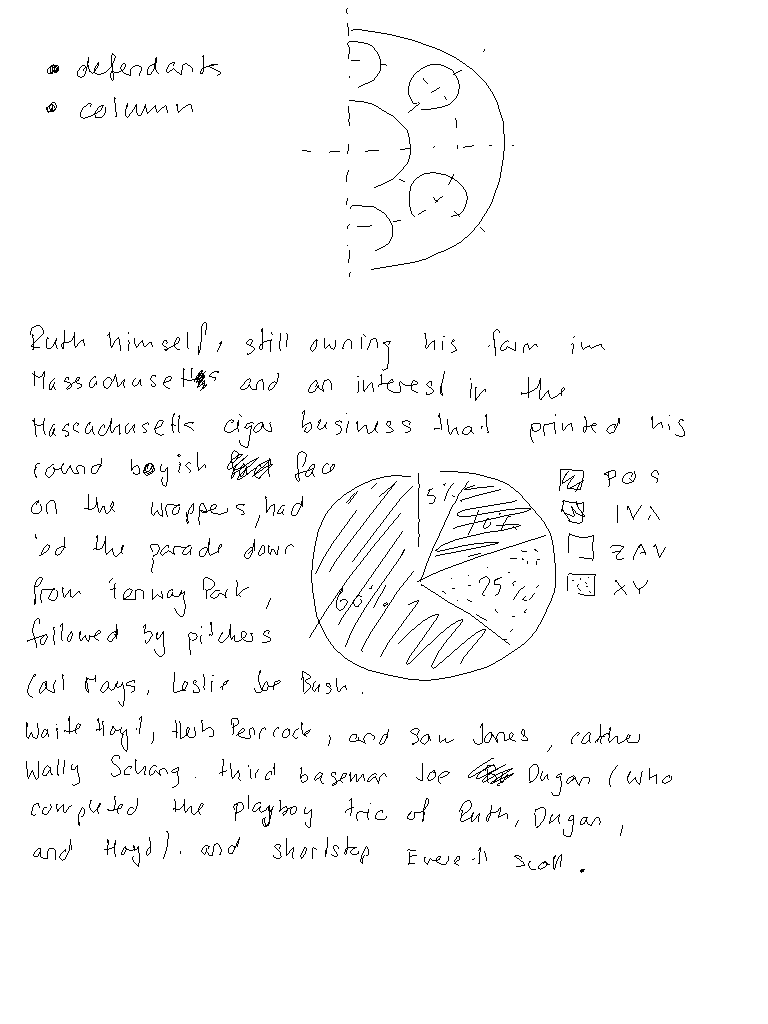 defendants
column
Ruth himself, still owning his farm in
Massachusetts and an interest in the
Massachusetts cigar business that printed his
round boyish face
on the wrappers, had
led the parade down
from Fenway Park,
followed by pitchers
Carl Mays, Leslie Joe Bush.
Waite Hoyt, Herb Penncock, and Sam Jones, catcher
Wally Schang. third baseman Joe Dugan (who
completed the playboy trio of Ruth, Dugan,
and Hoyt). and shortstop Everett Scott.
5%
10%
25%
60%
POS
IVX
ZAV
XY